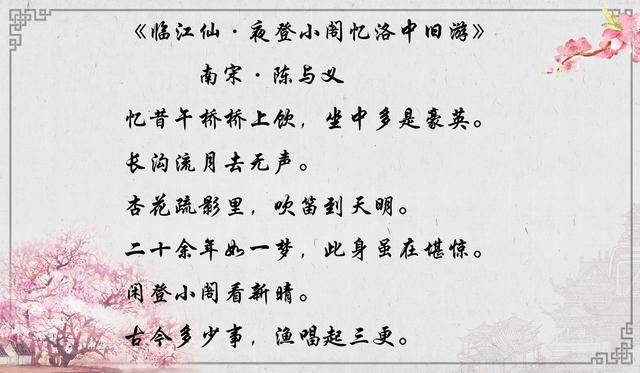 《临江仙·夜登小阁忆洛中旧游》
南宋·陈与义
忆昔午桥桥上饮，坐中多是豪英。
长沟流月去无声。
杏花疏影里，吹笛到天明。
二十余年如一梦，此身虽在堪惊。
闲登小阁看新晴。
古今多少事，渔唱起三更。